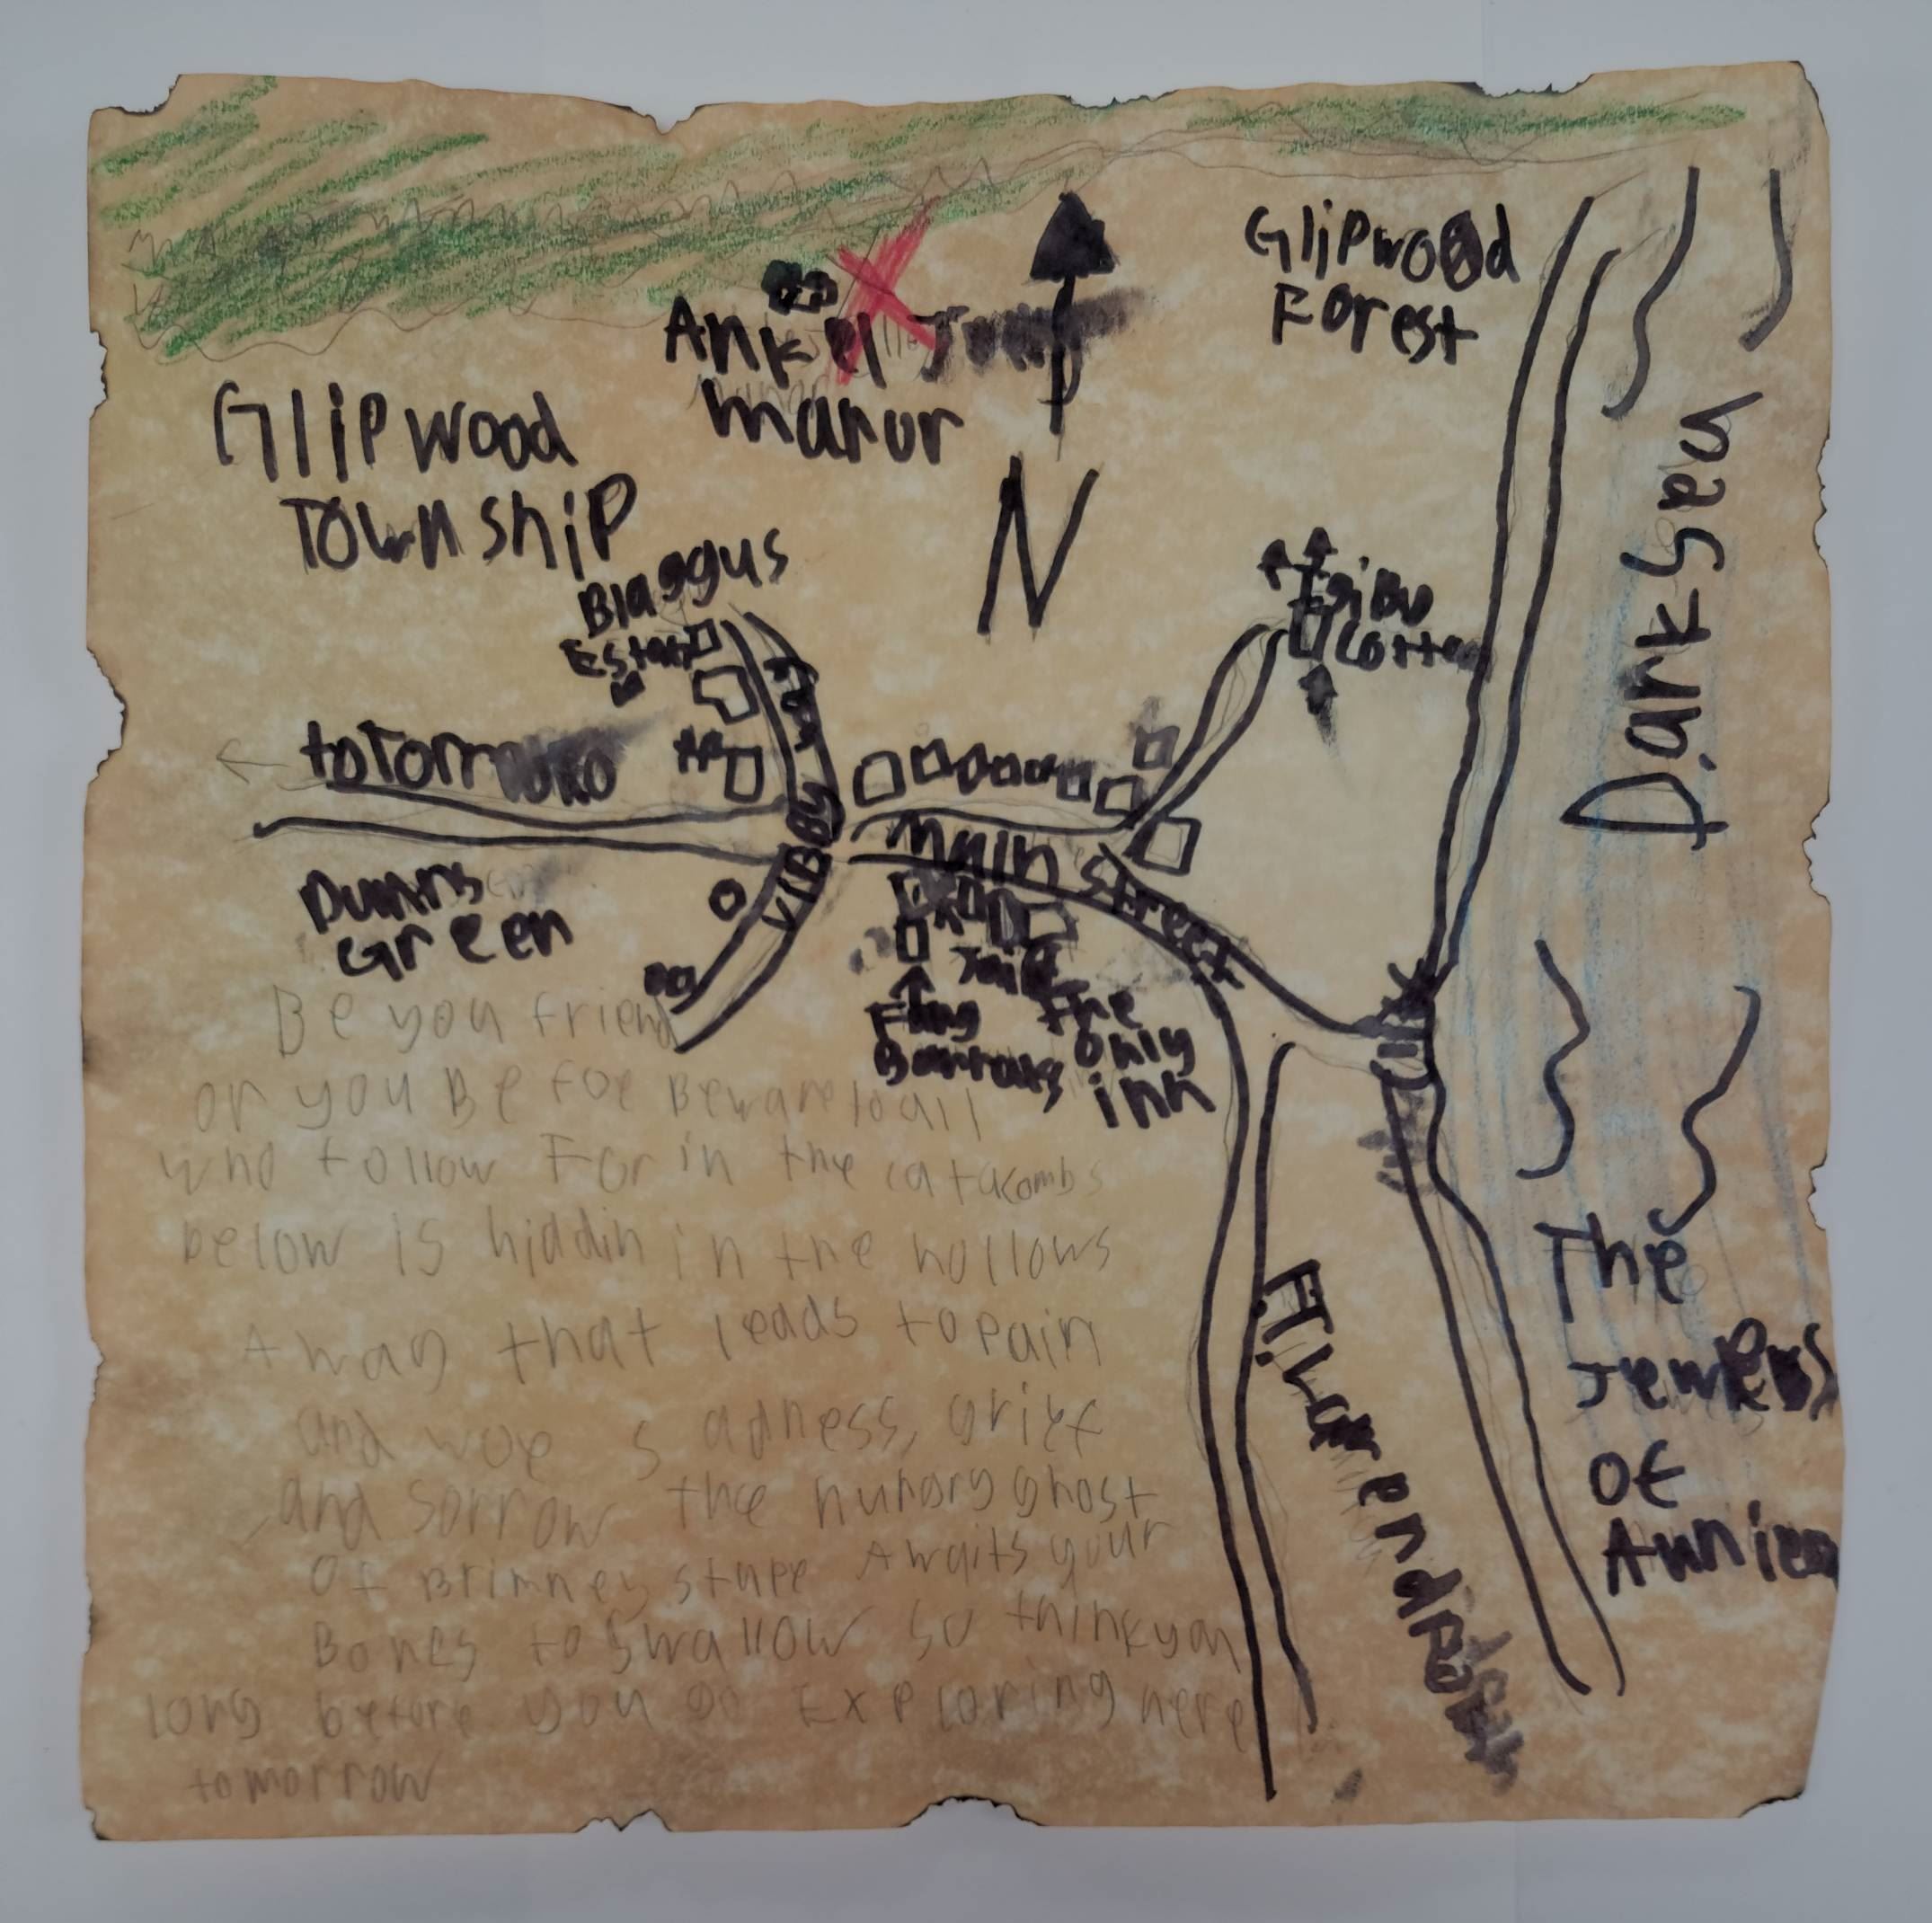 Glipwood
Forest
Manur
Glipwood
Township
N
Dark Sea
Blaggus
to Torr
Main Street
Vibbly
Dunns
Green
Jail
Flag
The
only
inn
Be you friend
or you Be foe Beware to all
who follow For in the catacombs
below is hiddin in the hollows
A way that leads to pain
and woe sadness, grief
and sorrow the hungry ghost
Of Brimney stupe Awaits your
Bones to swallow so think you
long before you go Exploring here
tomorrow
The
Jewels
of
Anniera